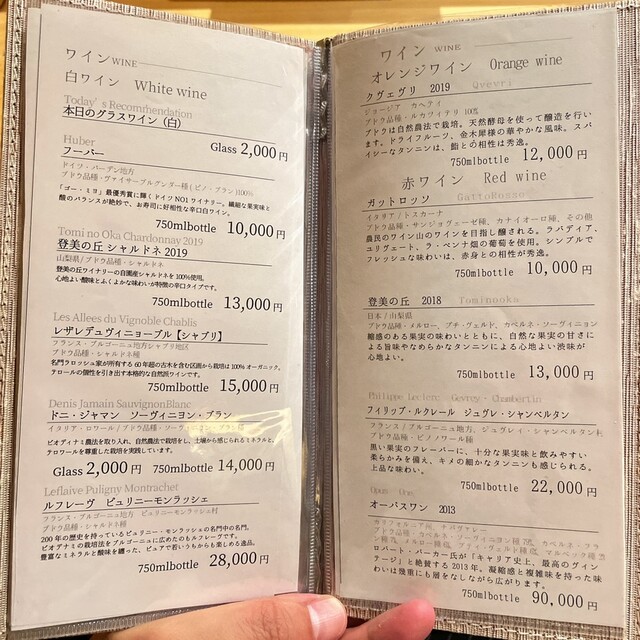 ワイン WINE
白ワイン White wine
Today's Recomrhendation
本日のグラスワイン (白)
Glass 2,000円
Huber
フーバー
ドイツ・バーデン地方
ブドウ品種・ヴァイサーブルグンダー種(ピノ・ブラン)100%
「ゴー・ミヨ」最優秀賞に輝くドイツNO1ワイナリー。繊細な果実味と
酸のバランスが絶妙で、お寿司に好相性な辛口白ワイン。
750mlbottle 10,000円
Tomi no Oka Chardonnay 2019
登美の丘 シャルドネ 2019
山梨県/ブドウ品種・シャルドネ
登美の丘ワイナリーの自園産シャルドネを100%使用。
心地よい酸味とふくよかな味わいが特徴の辛口タイプです。
750mlbottle 13,000円
Les Allees du Vignoble Chablis
レザレデュヴィニョーブル【シャブリ】
フランス・ブルゴーニュ地方シャブリ地区
ブドウ品種・シャルドネ種
名門ラロッシュ家が所有する60年超の古木を含む区画から栽培は100%オーガニック。
テロールの個性を引き出す本格的な自然派ワインです。
750mlbottle 15,000円
Denis Jamain SauvignonBlanc
ドニ・ジャマン ソーヴィニヨン・ブラン
イタリア・ロワール/ブドウ品種・ソーヴィニヨン・ブラン種
ビオディナミ農法を取り入れ、自然農法で栽培をし、土壌から感じられるミネラルと、
テロワールを尊重した栽培を実践しています。
Glass 2,000円 750mlbottle 14,000円
Leflaive Puligny Montrachet
ルフレーヴ ピュリニーモンラッシェ
フランス・ブルゴーニュ地方・ピュリニーモンラッシェ村
ブドウ品種・シャルドネ種
200年の歴史を持っているピュリニー・モンラッシェの名門中の名門。
ビオデナミの栽培法をブルゴーニュに広めたのもルフレーヴです。
豊富なミネラルと酸味を纏った、ピュアで若いうちからも楽しめる逸品。
750mlbottle 28,000円
ワイン WINE
オレンジワイン Orange wine
クヴェヴリ 2019 Qvevri
ジョージア カヘティ
ブドウ品種・ルカツィテリ 100%
ブドウは自然農法で栽培。天然酵母を使って醸造を行い
ます。ドライフルーツ、金木犀様の華やかな風味。スパ
イシーなタンニンは、鮨との相性は秀逸。
750mlbottle 12,000円
赤ワイン Red wine
ガットロッソ GattoRosso
イタリア/トスカーナ
ブドウ品種・サンジョヴェーゼ種、カナイオーロ種、その他
農民のワイン山のワインを目指し醸される。ラパディア、
ユリヴェート、ラ・ペンナ畑の葡萄を使用。シンプルで
フレッシュな味わいは、赤身との相性が秀逸。
750mlbottle 10,000円
登美の丘 2018 Tominooka
日本/山梨県
ブドウ品種・メルロー、プチ・ヴェルド、カベルネ・ソーヴィニヨン
縮感のある果実の味わいとともに、自然な果実の甘さに
よる旨味やなめらかなタンニンによる心地よい渋味が
心地よい。
750mlbottle 13,000円
Philippe Leclerc Gevrey-Chambertin
フィリップ・ルクレール ジュヴレ・シャンベルタン
フランス/ブルゴーニュ地方、ジュヴレイ・シャンベルタン村
ブドウ品種・ピノノワール種
黒い果実のフレーバーに、十分な果実味と飲みやすい
柔らかみを備え、キメの細かなタンニンも感じられる。
上品な味わい。
750mlbottle 22,000円
Opus One
オーパスワン 2013
カリフォルニア州、ナパヴァレー
ブドウ品種・カベルネ・ソーヴィニヨン種 79%、カベルネ・フラ
ロバート・パーカー氏が「キャリア史上、最高のヴィン
テージ」と絶賛する2013年。凝縮感と複雑味を持った味
わいは幾重にも層をなしながら広がります。
750mlbottle 90,000円